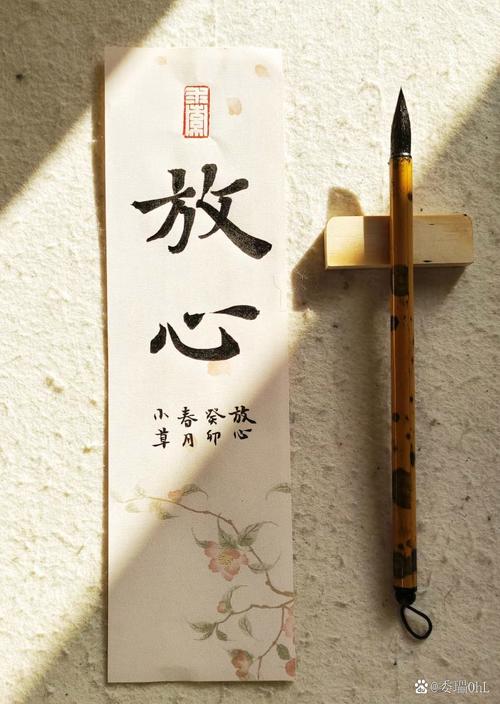 放心
放心
癸卯
春月
小草
@秂瑠0hL